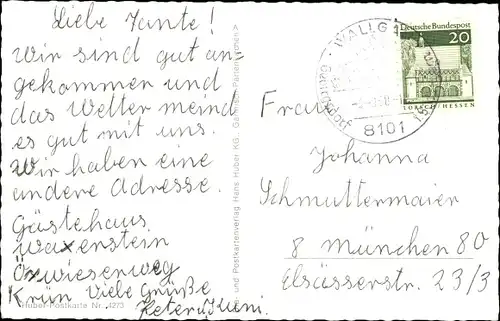 Liebe Tante!
Wir sind gut an-
gekommen und
das Wetter meind
es gut mit uns.
Wir haben eine
andere Adresse.
Gästehaus
Waxenstein
Öxwieserweg
Krün Viele Grüße
Peter u.
Huber-Postkarte Nr. 4273
und Postkartenverlag Hans Huber KG, Garmisch-Partenkirchen
WALLG
8101
Deutsche Bundespost
20
LORSCH/HESSEN
Frau
Johanna
Schmuttermaier
8 München 80
Elsässerstr. 23/3